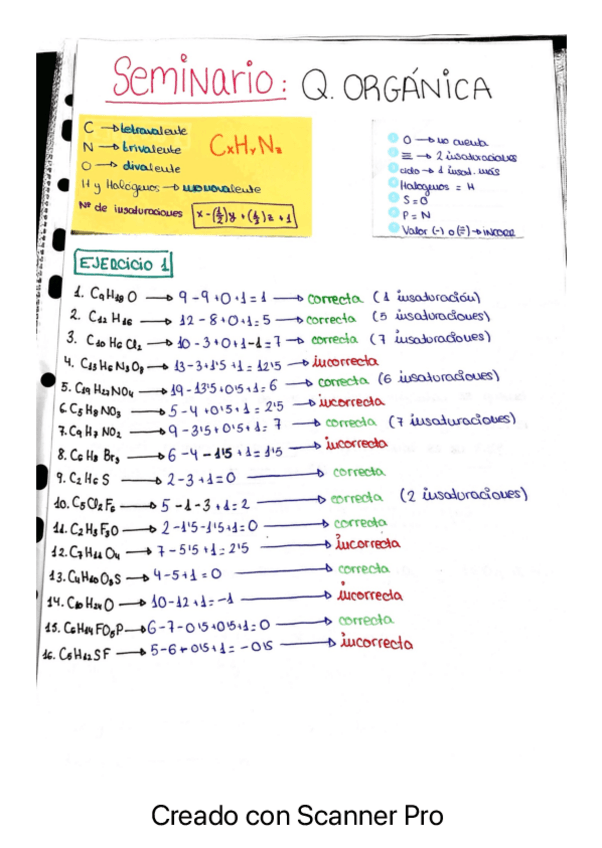 Seminario: Q. ORGÁNICA
C → tetravalente
N → trivalente
O → divalente
H y Halógenos → monovalente
CxHyNz
Nº de insaturaciones x-(½)y+(½)z+1
O → no cuenta
≡ → 2 insaturaciones
ciclo → 1 insat. más
Halógenos = H
S = O
P = N
Valor (-) o
EJERCICIO 1
1. C9H18O → 9-9+0+1=1 → correcta (1 insaturación)
2. C12H16 → 12-8+0+1=5 → correcta (5 insaturaciones)
3. C10H6Cl2 → 10-3+0+1-1=7 → correcta (7 insaturaciones)
4. C13H6N3O8 → 13-3+1'5+1=12'5 → incorrecta
5. C19H27NO4 → 19-13'5+0'5+1=6 → correcta (6 insaturaciones)
6. C5H8NO3 → 5-4+0'5+1=2'5 → incorrecta
7. C9H7NO2 → 9-3'5+0'5+1=7 → correcta (7 insaturaciones)
8. C6H8Br3 → 6-4-1'5+1=1'5 → incorrecta
9. C2H6S → 2-3+1=0 → correcta
10. C5Cl2F6 → 5-1-3+1=2 → correcta (2 insaturaciones)
11. C2H3F3O → 2-1'5-1'5+1=0 → correcta
12. C7H11O4 → 7-5'5+1=2'5 → incorrecta
13. C4H10O3S → 4-5+1=0 → correcta
14. C10H24O → 10-12+1=-1 → incorrecta
15. C6H14FO3P → 6-7-0'5+0'5+1=0 → correcta
16. C5H12SF → 5-6+0'5+1=-0'5 → incorrecta
Creado con Scanner Pro